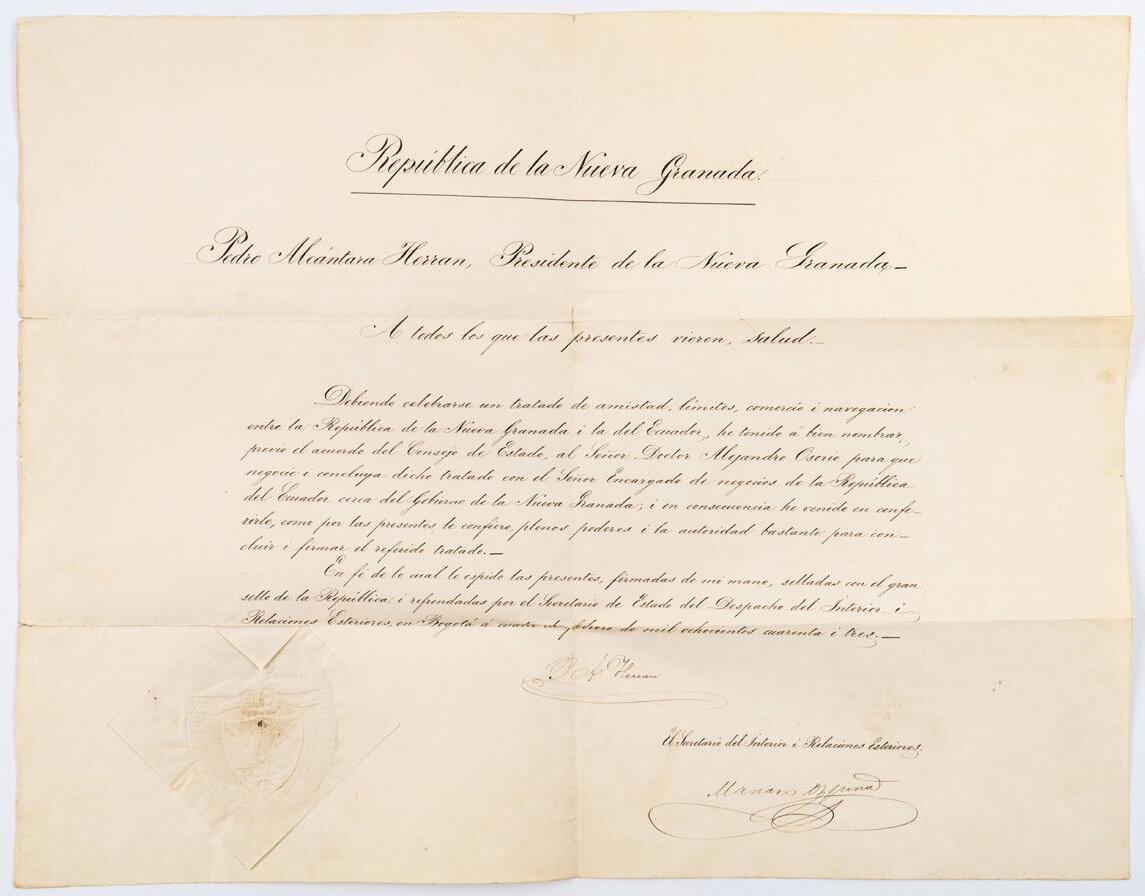 República de la Nueva Granada.
Pedro Alcántara Herran, Presidente de la Nueva Granada—
A todos los que las presentes vieren, salud.—
Debiendo celebrarse un tratado de amistad, límites, comercio i navegacion
entre la República de la Nueva Granada i la del Ecuador, he tenido á bien nombrar,
previo el acuerdo del Consejo de Estado, al Señor Doctor Alejandro Osorio para que
negocie i concluya dicho tratado con el Señor Encargado de negocios de la República
del Ecuador cerca del Gobierno de la Nueva Granada; i en consecuencia he venido en confe-
rirle, como por las presentes le confiero, plenos poderes i la autoridad bastante para con-
cluir i firmar el referido tratado.—
En fé de lo cual le espido las presentes, firmadas de mi mano, selladas con el gran
sello de la República, i refrendadas por el Secretario de Estado del Despacho del Interior i
Relaciones Esteriores, en Bogotá á cuatro de febrero de mil ochocientos cuarenta i tres.—
P A Herran
El Secretario del Interior i Relaciones Esteriores.
Mariano Ospina